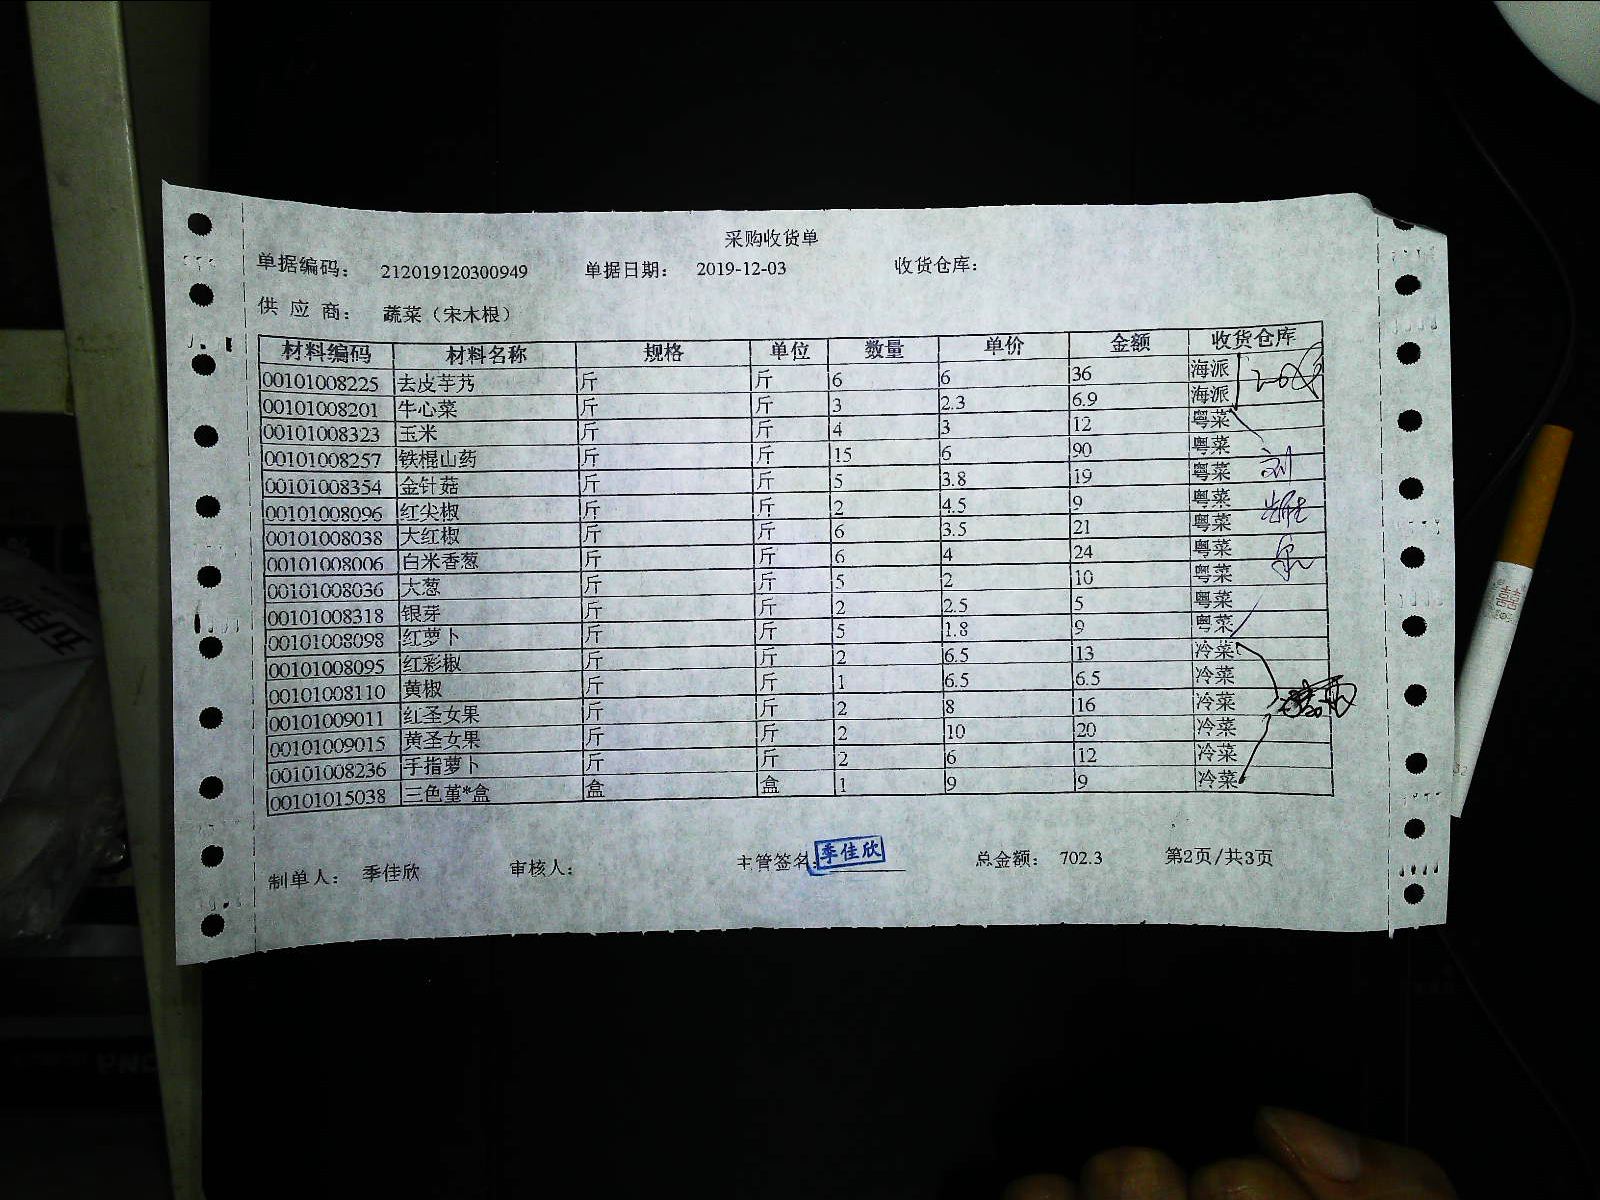 采购收货单
单据编码： 212019120300949 单据日期： 2019-12-03 收货仓库：
供 应 商： 蔬菜（宋木根）
材料编码 材料名称 规格 单位 数量 单价 金额 收货仓库
00101008225 去皮芋艿 斤 斤 6 6 36 海派
00101008201 牛心菜 斤 斤 3 2.3 6.9 海派
00101008323 玉米 斤 斤 4 3 12 粤菜
00101008257 铁棍山药 斤 斤 15 6 90 粤菜
00101008354 金针菇 斤 斤 5 3.8 19 粤菜
00101008096 红尖椒 斤 斤 2 4.5 9 粤菜
00101008038 大红椒 斤 斤 6 3.5 21 粤菜
00101008006 白米香葱 斤 斤 6 4 24 粤菜
00101008036 大葱 斤 斤 5 2 10 粤菜
00101008318 银芽 斤 斤 2 2.5 5 粤菜
00101008098 红萝卜 斤 斤 5 1.8 9 粤菜
00101008095 红彩椒 斤 斤 2 6.5 13 冷菜
00101008110 黄椒 斤 斤 1 6.5 6.5 冷菜
00101009011 红圣女果 斤 斤 2 8 16 冷菜
00101009015 黄圣女果 斤 斤 2 10 20 冷菜
00101008236 手指萝卜 斤 斤 2 6 12 冷菜
00101015038 三色堇*盒 盒 盒 1 9 9 冷菜
制单人： 季佳欣 审核人： 主管签名： 季佳欣 总金额： 702.3 第2页/共3页